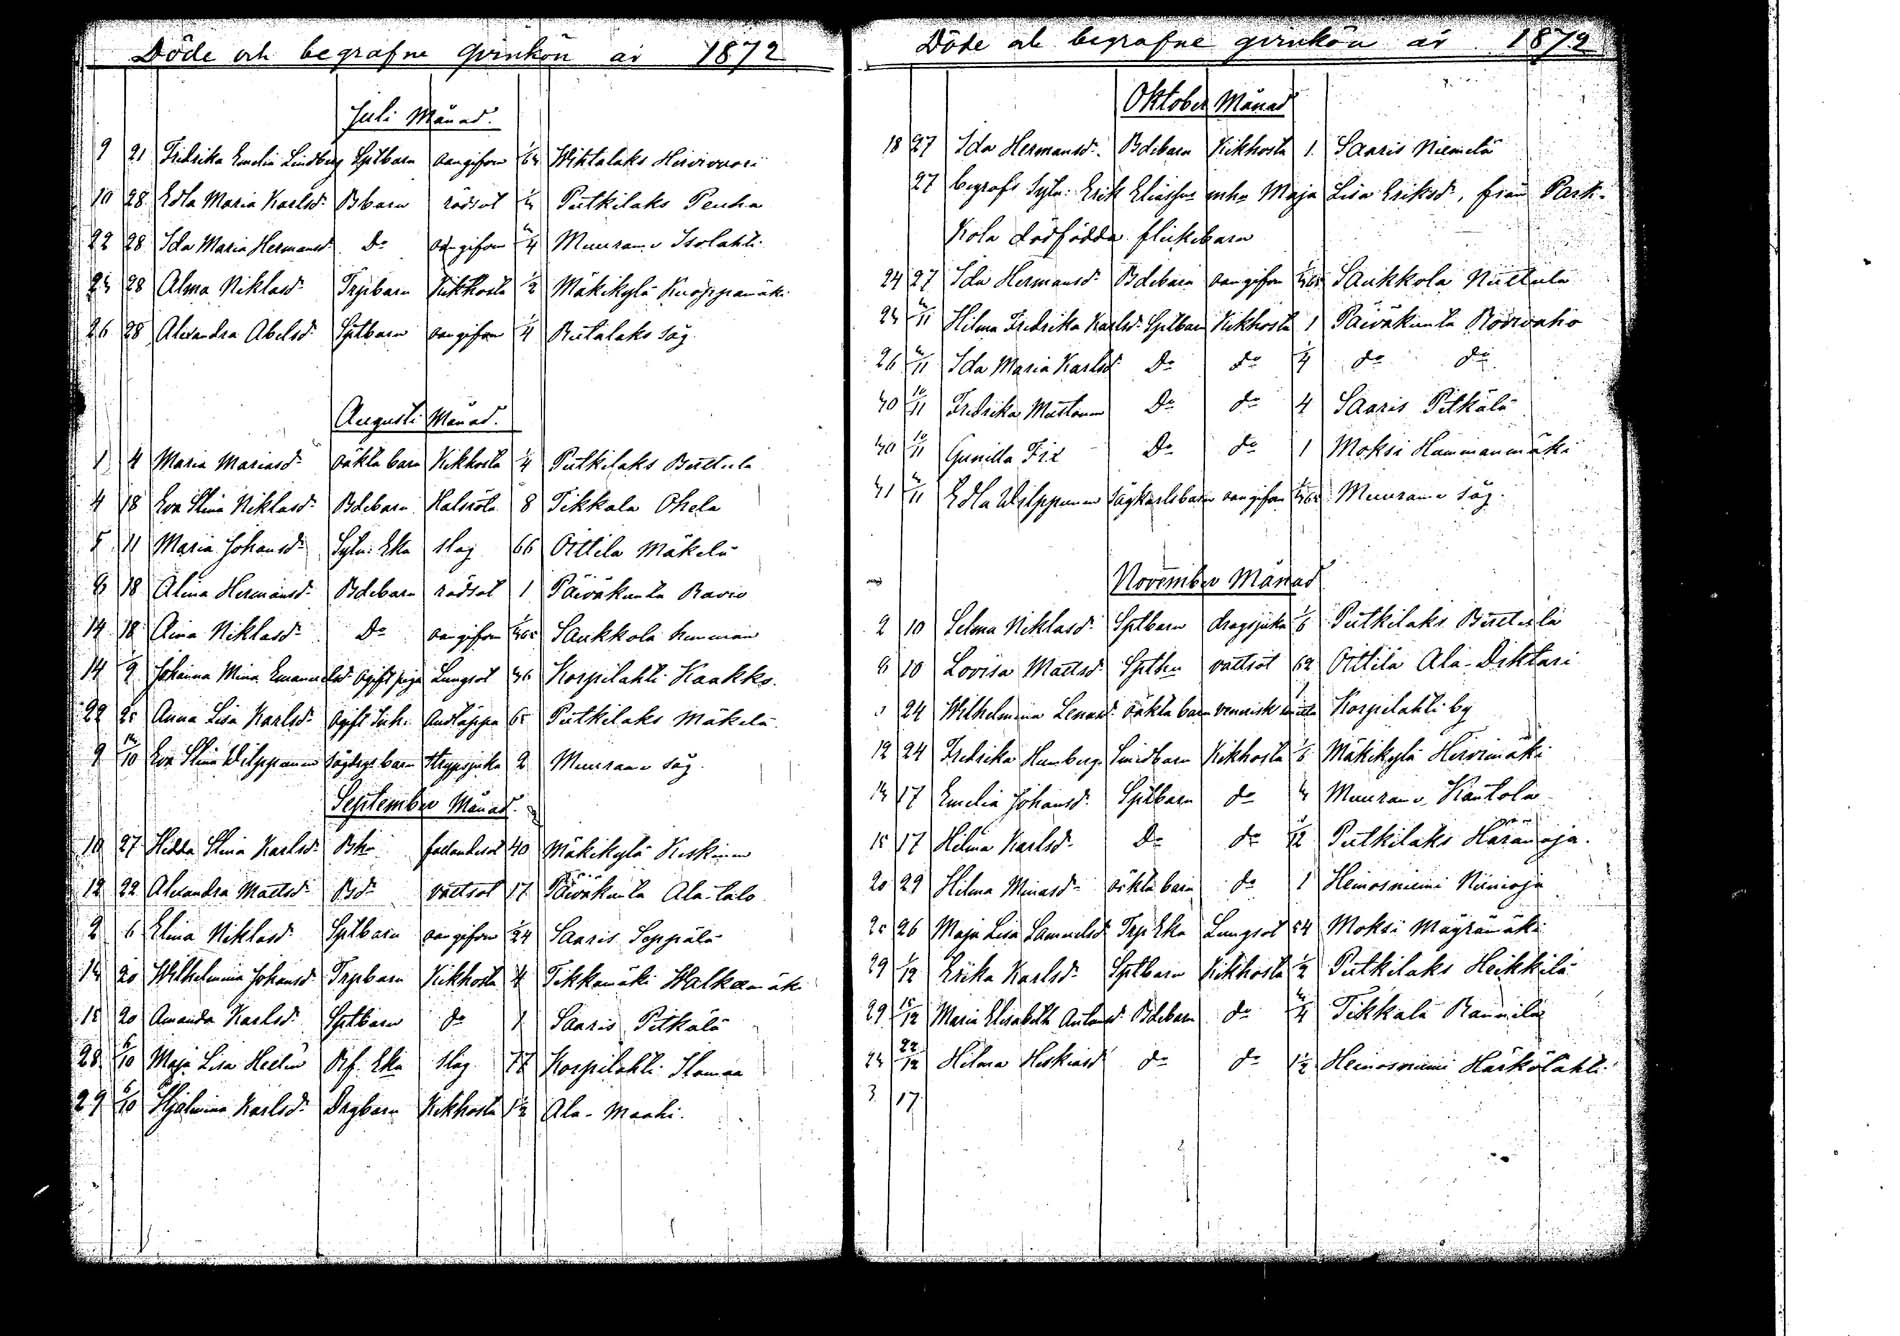 Döde och begrafne qvinkön år 1872
Juli Månad.
9 21 Fredrika Emelia Lindberg Sptbarn oangifven Wihtalaks Hirvivuori
10 28 Edla Maria Karlsd. Bbarn rödsot Putkilaks Penha
22 28 Ida Maria Hermansd. Do oangifven Muurame Isolahti
28 Alma Niklasd. Trpbarn Kikhosta 1/2 Mäkikylä Kuoppamäki
26 28 Alexandra Abelsd. Sptbarn oangifven 1/4 Rutalaks såg
Augusti Månad.
1 4 Maria Mariasd. oäkta barn Kikhosta 1/4 Putkilaks
4 18 Eva Stina Niklasd. Bdebarn Halsröta 8 Tikkala Ohela
5 11 Maria Johansd. Sytn: Eka slag 66 Oittila Mäkelä
8 18 Alina Hermansd. Bdebarn rödsot 1 Päiväkunta Ravio
14 18 Aina Niklasd. Do oangifven Saukkola
14 Johanna Mina Emanuelsd. ogift piga Lungsot 36 Korpilahti Kaakko.
22 25 Anna Lisa Karlsd. ogift Inh. Andtäppa 65 Putkilaks Mäkelä
9 Eva Stina Wilppunen barn strypsjuka 2 Muurame såg.
September Månad.
10 27 Hedda Stina Karlsd. Bhu fallandesot 40 Mäkikylä Keskinen
12 22 Alexandra Mattsd. Bsd. vattsot 17 Päiväkunta Ala-talo
2 6 Elina Niklasd. Sptbarn oangifven Saaris Seppälä
20 Wilhelmina Johansd. Trpbarn Kikhosta 4 Tikkamäki Walkeamäki
15 20 Amanda Karlsd. Sptbarn do 1 Saaris Pitkälä
28 6/10 Maja Lisa Helin Bf. Eka slag 77 Korpilahti Ilomaa
29 6/10 Hjalmina Karlsd. Drgbarn Kikhosta 1 1/2 Ala-Maahi.
Döde och begrafne qvinkön år 1872
Oktober Månad
18 27 Ida Hermansd. Bdebarn Kikhosta 1. Saaris Niemelä
27 begrofs Sytn: Erik Eliassons enka Maja Lisa Eriksd., från Park-
Kola dödfödda flickebarn
24 27 Ida Hermansd. Bdebarn oangifven Saukkola Nuttula
Hilma Fredrika Karlsd. Sptbarn Kikhosta 1 Päiväkunta
26 Ida Maria Karlsd. Do do 1/4 do do
30 10/11 Fredrika Do do 4 Saaris Pitkälä
30 10/11 Gunilla Fix Do do 1 Moksi Hammanmäki
31 Edla Wilppunen sågkarlsbarn oangifven Muurame såg.
November Månad
2 10 Selma Niklasd. Sptbarn dragsjuka 1/6 Putkilaks
8 10 Lovisa Mattsd. Spthu vattsot 62 Oittila Ala-Diktari
24 Wilhelmina oäkta barn Korpilahti by
12 24 Fredrika Humberg Smidbarn Kikhosta 1/6 Mäkikylä Hirvimäki
17 Emelia Johansd. Sptbarn do Muurame Kantola
15 17 Hilma Karlsd. Do do Putkilaks Häränoja.
20 29 Hilma Minasd. oäkta barn do 1 Heinosniemi Niinioja
25 26 Maja Lisa Samuelsd. Trp Eka Lungsot 54 Moksi Mäyrämäki
29 1/12 Erika Karlsd. Sptbarn Kikhosta 1/2 Putkilaks Heikkilä
29 15/12 Maria Elisabeth Antonsd. Bdebarn do 3/4 Tikkala Rannila
22/12 Hilma Heskiasd. do do 1 1/2 Heinosniemi Härkölahti
3 17.